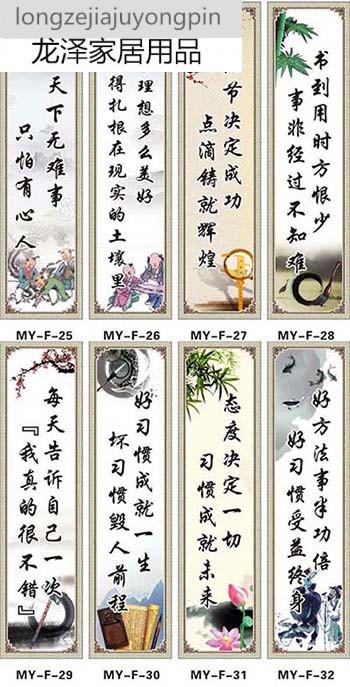 longzejiajuyongpin
龙泽家居用品
天下无难事
只怕有心人
理想多么美好
得扎根在现实的土壤里
节决定成功
点滴铸就辉煌
书到用时方恨少
事非经过不知难
MY-F-25
MY-F-26
MY-F-27
MY-F-28
每天告诉自己一次
『我真的很不错』
好习惯成就一生
坏习惯毁人前程
态度决定一切
习惯成就未来
好方法事半功倍
好习惯受益终身
MY-F-29
MY-F-30
MY-F-31
MY-F-32